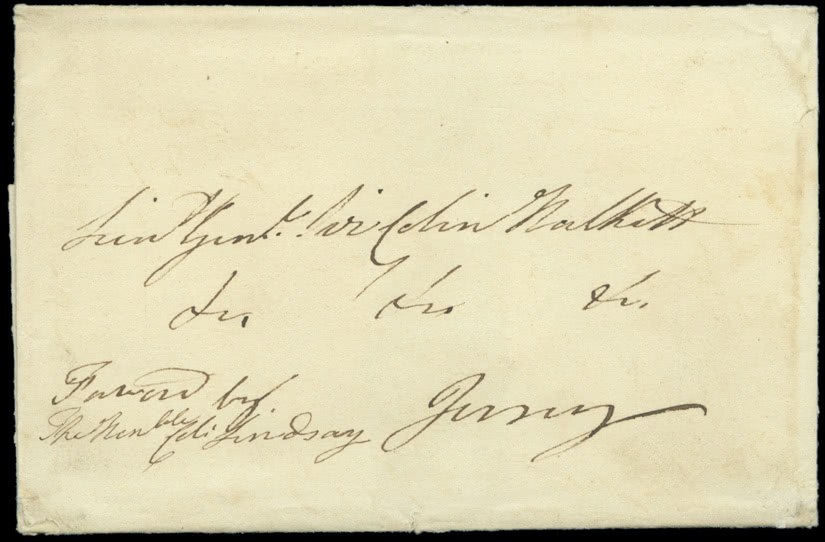 Lieu Genl. Sir Colin Halkett
&c. &c. &c.
Jersey
Favored by
The Honble Col: Lindsay